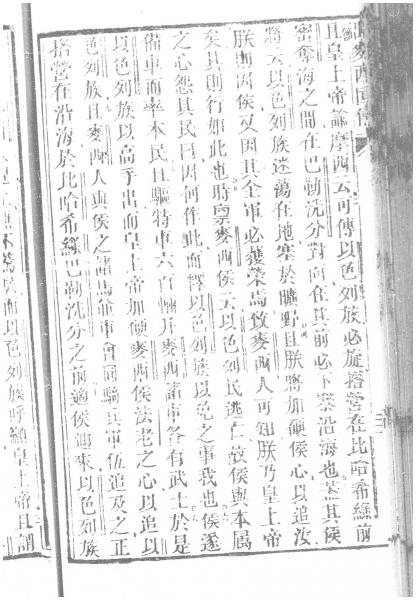 麥西國傳
且皇上帝諭摩西云可傳以色列族必旋搭營在比哈希綠前
密奪海之間在巴勒洗分對向在其前必下寨沿海也蓋其侯
將云以色列族迷蕩在地塞於曠野且朕將加硬侯心以追汝
朕由因侯又因其全軍必獲榮焉致麥西人可知朕乃皇上帝
矣其則行如此也時禀麥西侯云以色列民逃亡故侯與本屬
之心怨其民曰因何作此而釋以色列族以免之事我也侯遂
備車而率本民且驅特車六百輛并麥西諸車各有武士於是
以色列族以高手出而皇上帝加硬麥西侯法老之心以追以
色列族且麥西人與侯之諸馬諸車會同騎兵軍伍追及之正
搭營在沿海於比哈希綠巴勒洗分之前適侯來以色列族
而以色列族呼籲皇上帝且謂